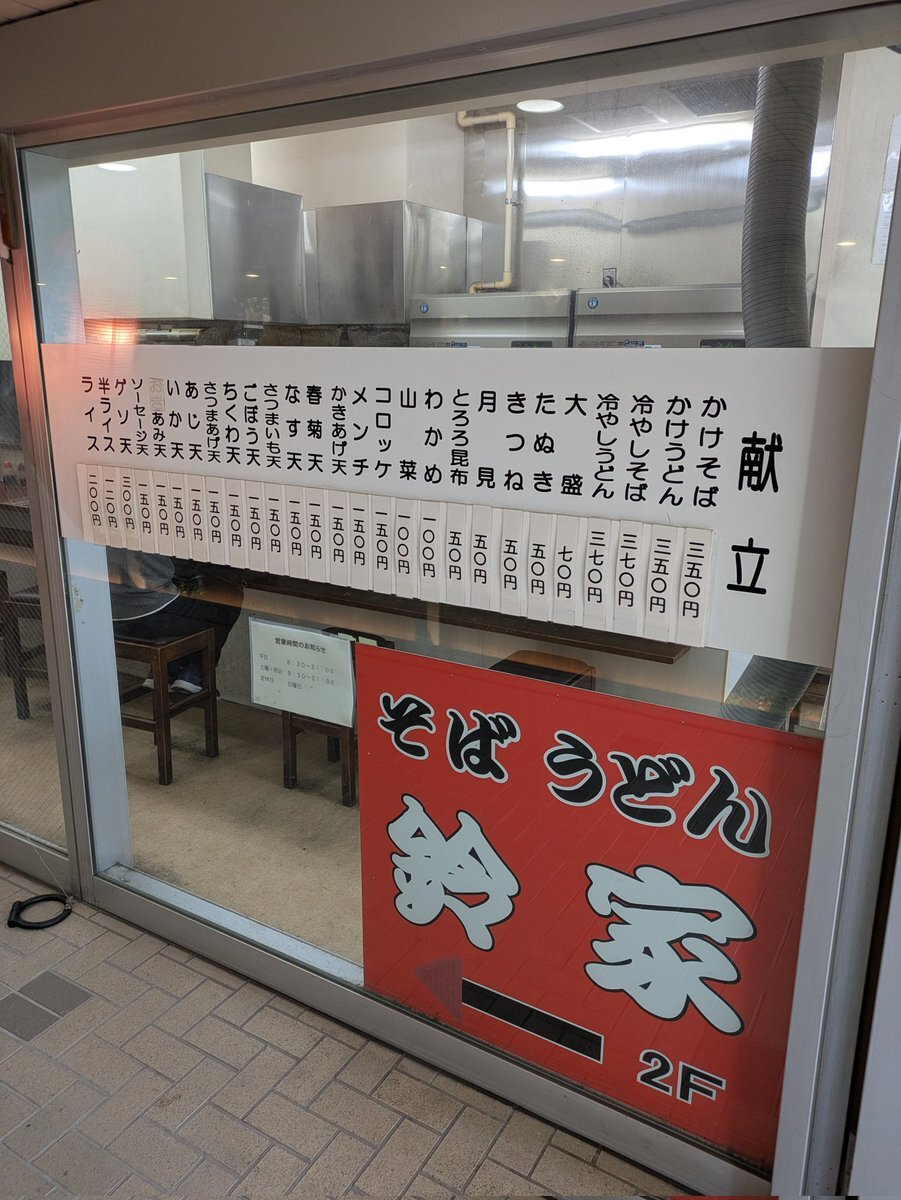 献立
かけそば 三五〇円
かけうどん 三五〇円
冷やしそば 三七〇円
冷やしうどん 三七〇円
大盛 七〇円
たぬき 五〇円
きつね 五〇円
月見 五〇円
とろろ昆布 五〇円
わかめ 一〇〇円
山菜 一〇〇円
コロッケ 一五〇円
メンチ 一五〇円
かきあげ天 一五〇円
春菊天 一五〇円
なす天 一五〇円
さつまいも天 一五〇円
ごぼう天 一五〇円
ちくわ天 一五〇円
さつまあげ天 一五〇円
あじ天 一五〇円
いか天 一五〇円
あみ天 一五〇円
ソーセージ天 一五〇円
ゲソ天 三〇〇円
半ライス 一二〇円
ライス 二〇〇円
営業時間のお知らせ
平日 8:30〜21:00
土曜・祝日 8:30〜21:00
定休日 日曜日
そば うどん
鈴家
2F